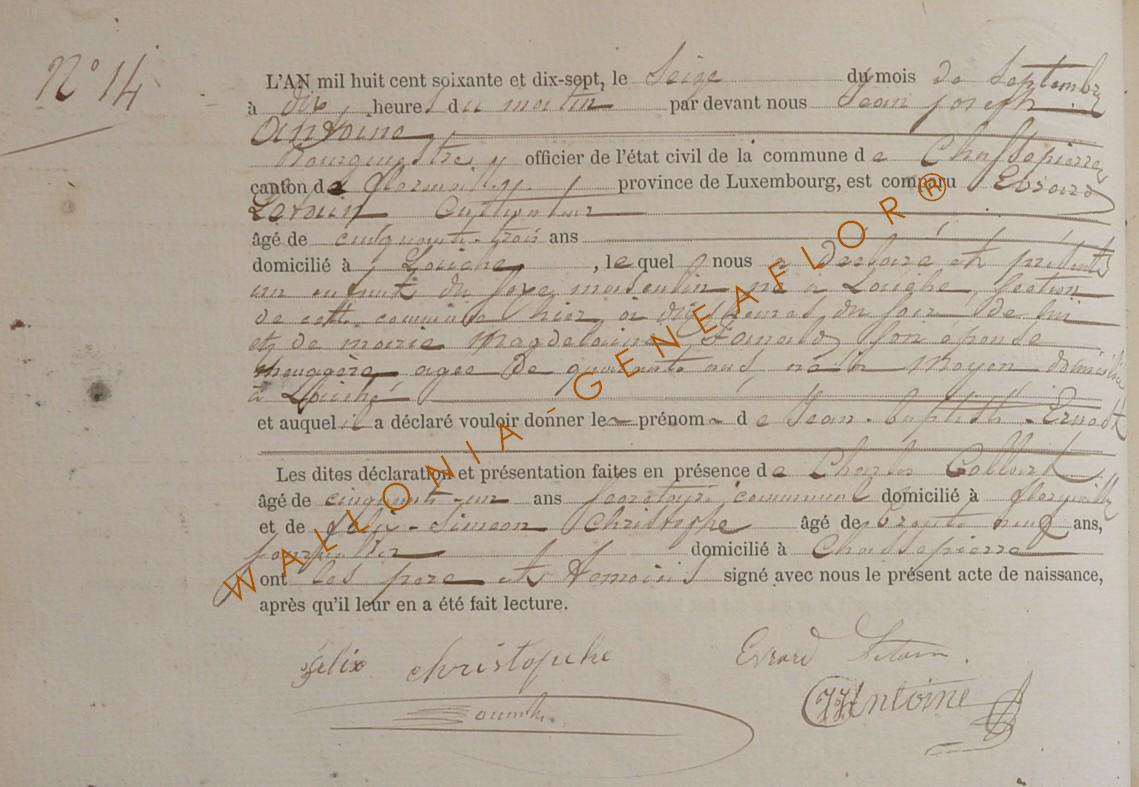 N° 14
L'AN mil huit cent soixante et dix-sept, le Seize du mois de Septembre
à dix heures du matin par devant nous Jean joseph
Antoine
Bourguestre officier de l'état civil de la commune de Chassepierre
canton de florenville province de Luxembourg, est comparu Evrard
Cultivateur
âgé de cinquante-trois ans
domicilié à Laiche, lequel nous a déclaré et présenté
un enfant du sexe masculin né à Laiche, section
de cette commune hier à dix heures du soir de lui
et de marie Magdelaine son épouse
menagère agée de quarante ans, née à Moyen domiciliée
à Laiche
et auquel il a déclaré vouloir donner le prénom de Jean-baptiste-Ernest
Les dites déclaration et présentation faites en présence de Charles Collard
âgé de cinquante-un ans Secretaire communal domicilié à florenville
et de felix-Simeon Christophe âgé de trente neuf ans,
domicilié à Chassepierre
ont les pere et témoins signé avec nous le présent acte de naissance,
après qu'il leur en a été fait lecture.
felix christophe
Evrard
JJAntoine
WALLONIA-GENEAFLOR®